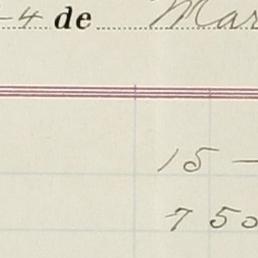 -4 de Mar
15 -
7 50